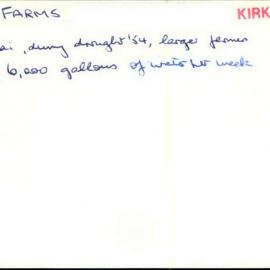 FARMS
KIRK
ai, during drought '54, larger farmer
6,000 gallons of water per week